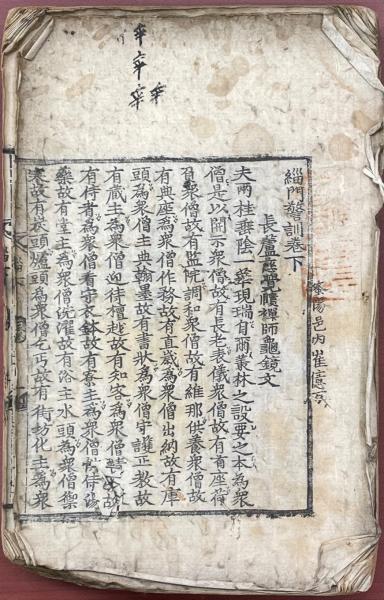 陽邑內崔
緇門警訓卷下
長蘆慈覺賾禪師龜鏡文
夫兩桂垂陰一華現瑞自爾叢林之設要之本為衆
僧是以開示衆僧故有長老表儀衆僧故有首座荷
負衆僧故有監院調和衆僧故有維那供養衆僧故
有典座為衆僧作務故有直歲為衆僧出納故有庫
頭為衆僧主典翰墨故有書狀為衆僧守護正教故
有藏主為衆僧迎待檀越故有知客為衆僧請召故
有侍者為衆僧看守衣鉢故有寮主為衆僧供侍湯
藥故有堂主為衆僧洗濯故有浴主水頭為衆僧禦
寒故有炭頭爐頭為衆僧乞丐故有街坊化主為衆